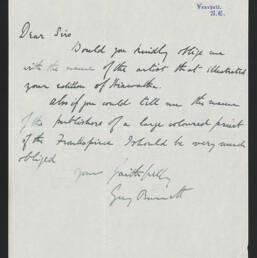 Vauxhall.
S.E.
Dear Sirs
Would you kindly oblige me
with the name of the artist that illustrated
your edition of Hiawatha.
also if you could tell me the name
of the publishers of a large coloured print
of the Frontispiece I should be very much
obliged
yours faithfully
Guy